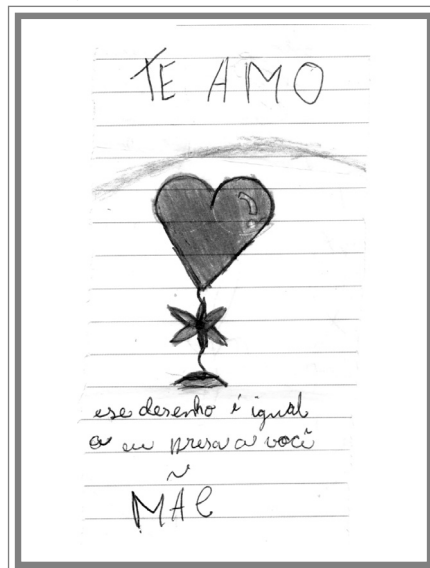 TE AMO
ese desenho é igual
a eu presa a você
MÃE